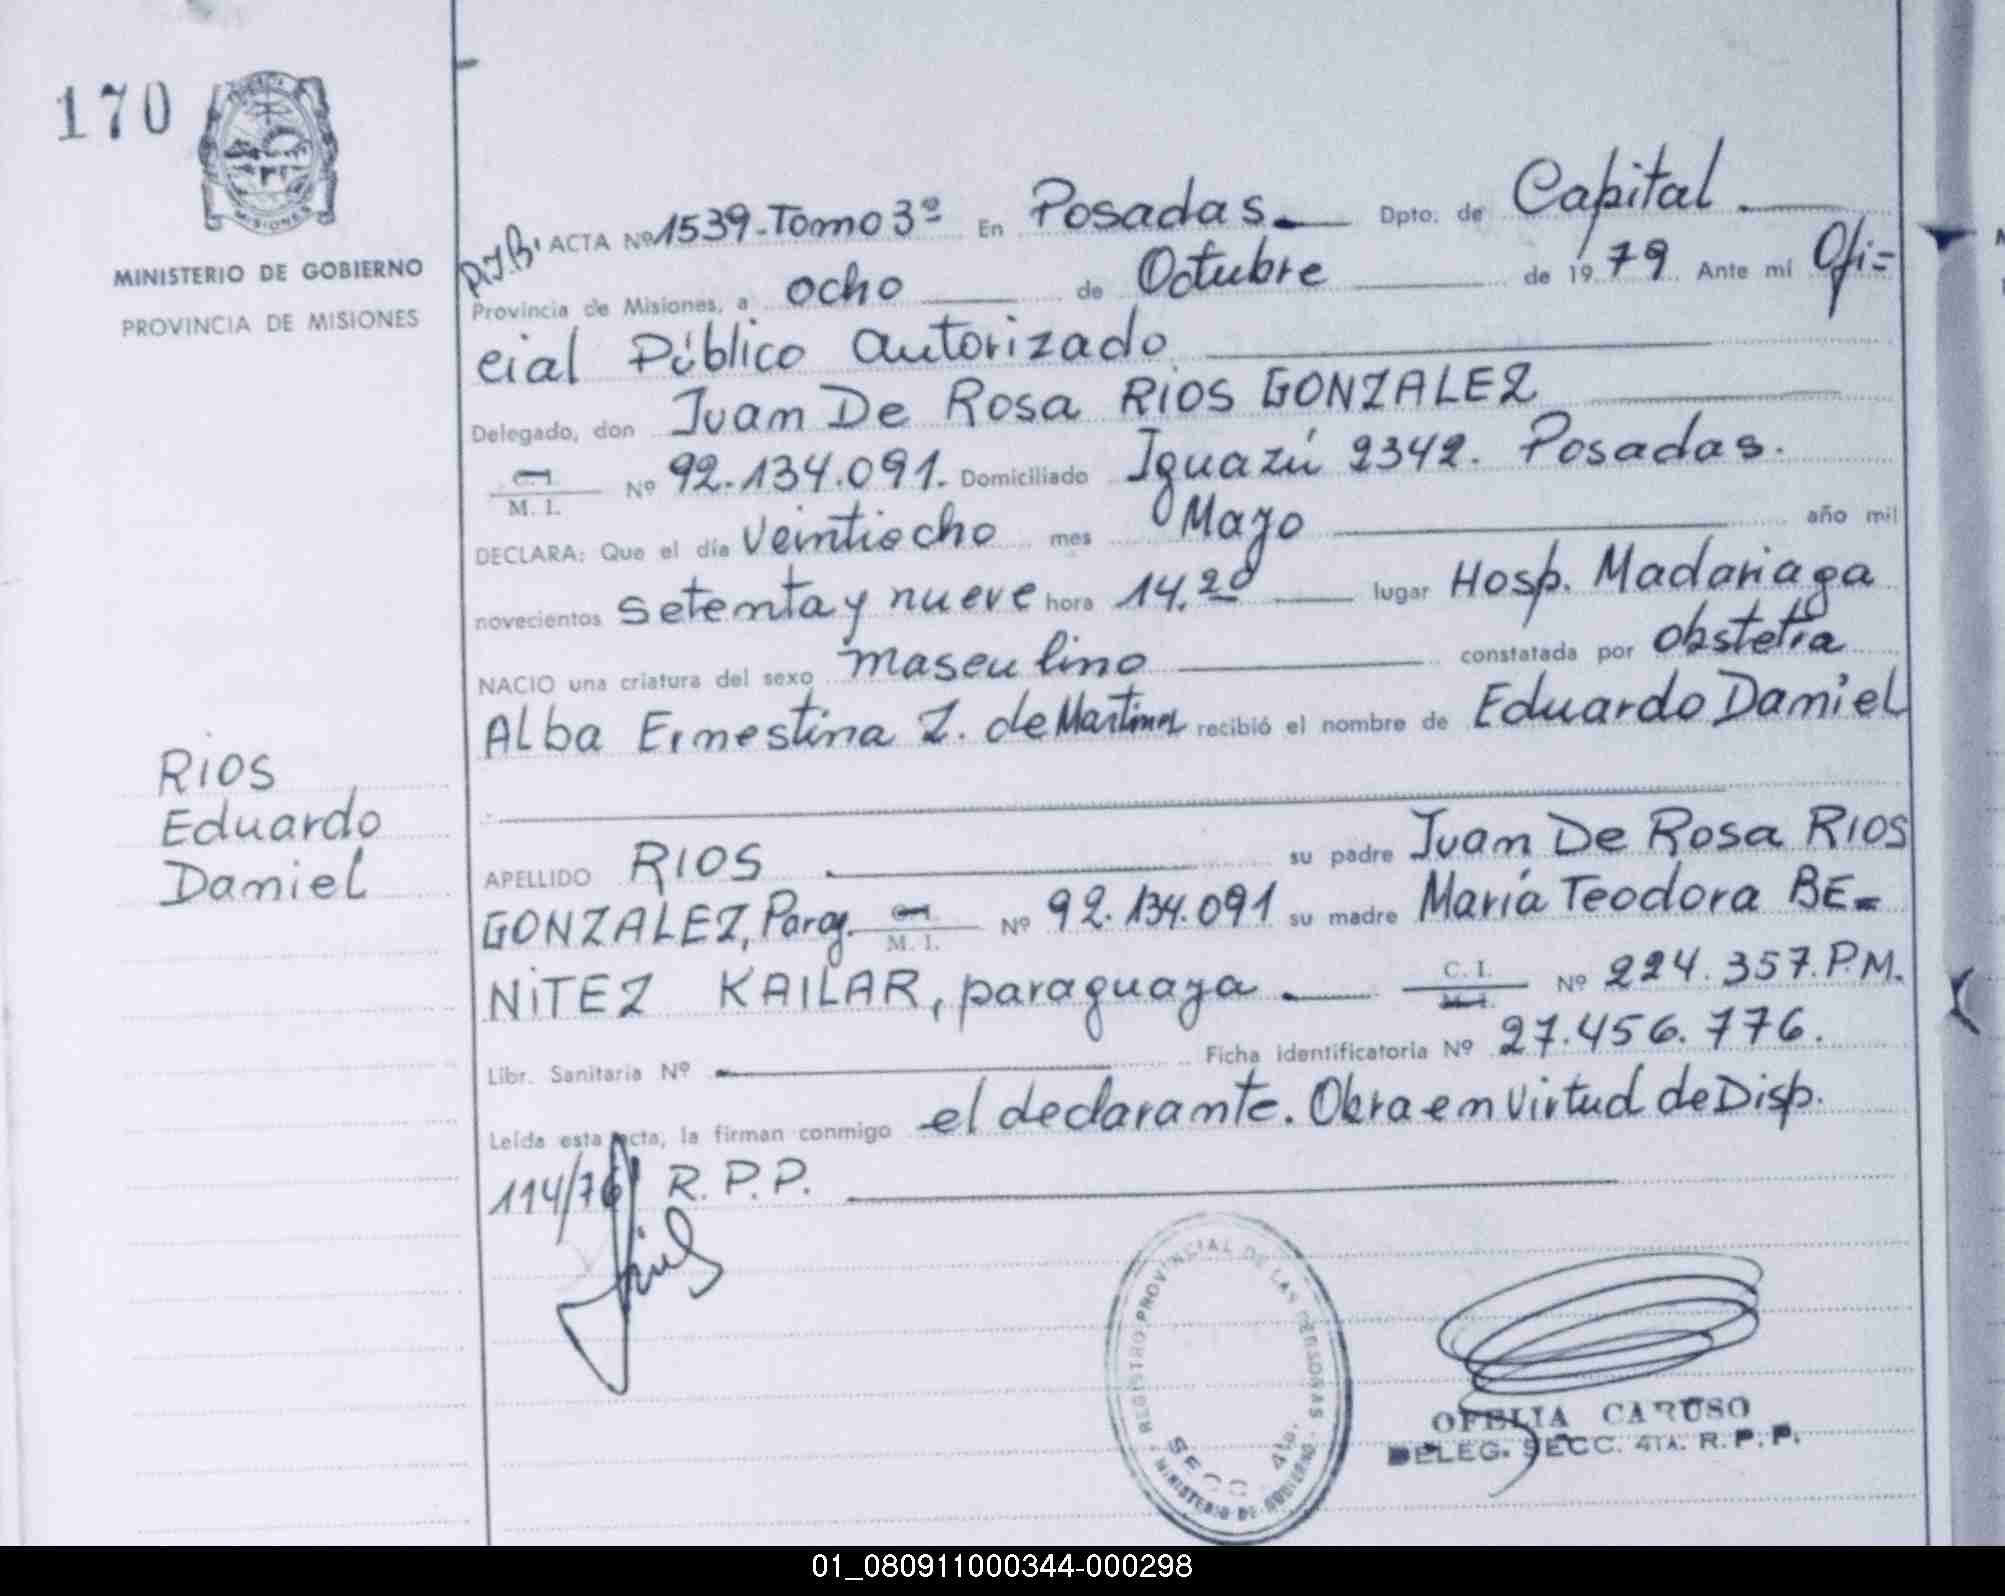 170
MISIONES
MINISTERIO DE GOBIERNO
PROVINCIA DE MISIONES
A.J.B. ACTA Nº 1539-Tomo 3º En Posadas. Dpto. de Capital
Provincia de Misiones, a ocho de Octubre de 1979 Ante mí Ofi=
cial Público autorizado
Delegado, don Juan De Rosa RIOS GONZALEZ
C.I. M. I. Nº 92.134.091. Domiciliado Iguazú 2342. Posadas.
DECLARA: Que el día veintiocho mes Mayo año mil
novecientos setenta y nueve hora 14.20 lugar Hosp. Madariaga
NACIO una criatura del sexo masculino constatada por obstetra
Alba Ernestina Z. de Martinez recibió el nombre de Eduardo Daniel
RIOS
Eduardo
Daniel
APELLIDO RIOS su padre Juan De Rosa RIOS
GONZALEZ, Parag. C.I. M. I. Nº 92.134.091 su madre María Teodora BE=
NITEZ KAILAR, paraguaya C. I. M. I. Nº 224.357.P.M.
Libr. Sanitaria Nº Ficha identificatoria Nº 27.456.776.
Leída esta acta, la firman conmigo el declarante. Obra en virtud de Disp.
114/76 R.P.P.
REGISTRO PROVINCIAL DE LAS PERSONAS
SECC. 4ta.
MINISTERIO DE GOBIERNO
OFELIA CARUSO
DELEG. SECC. 4TA. R.P.P.
01_080911000344-000298